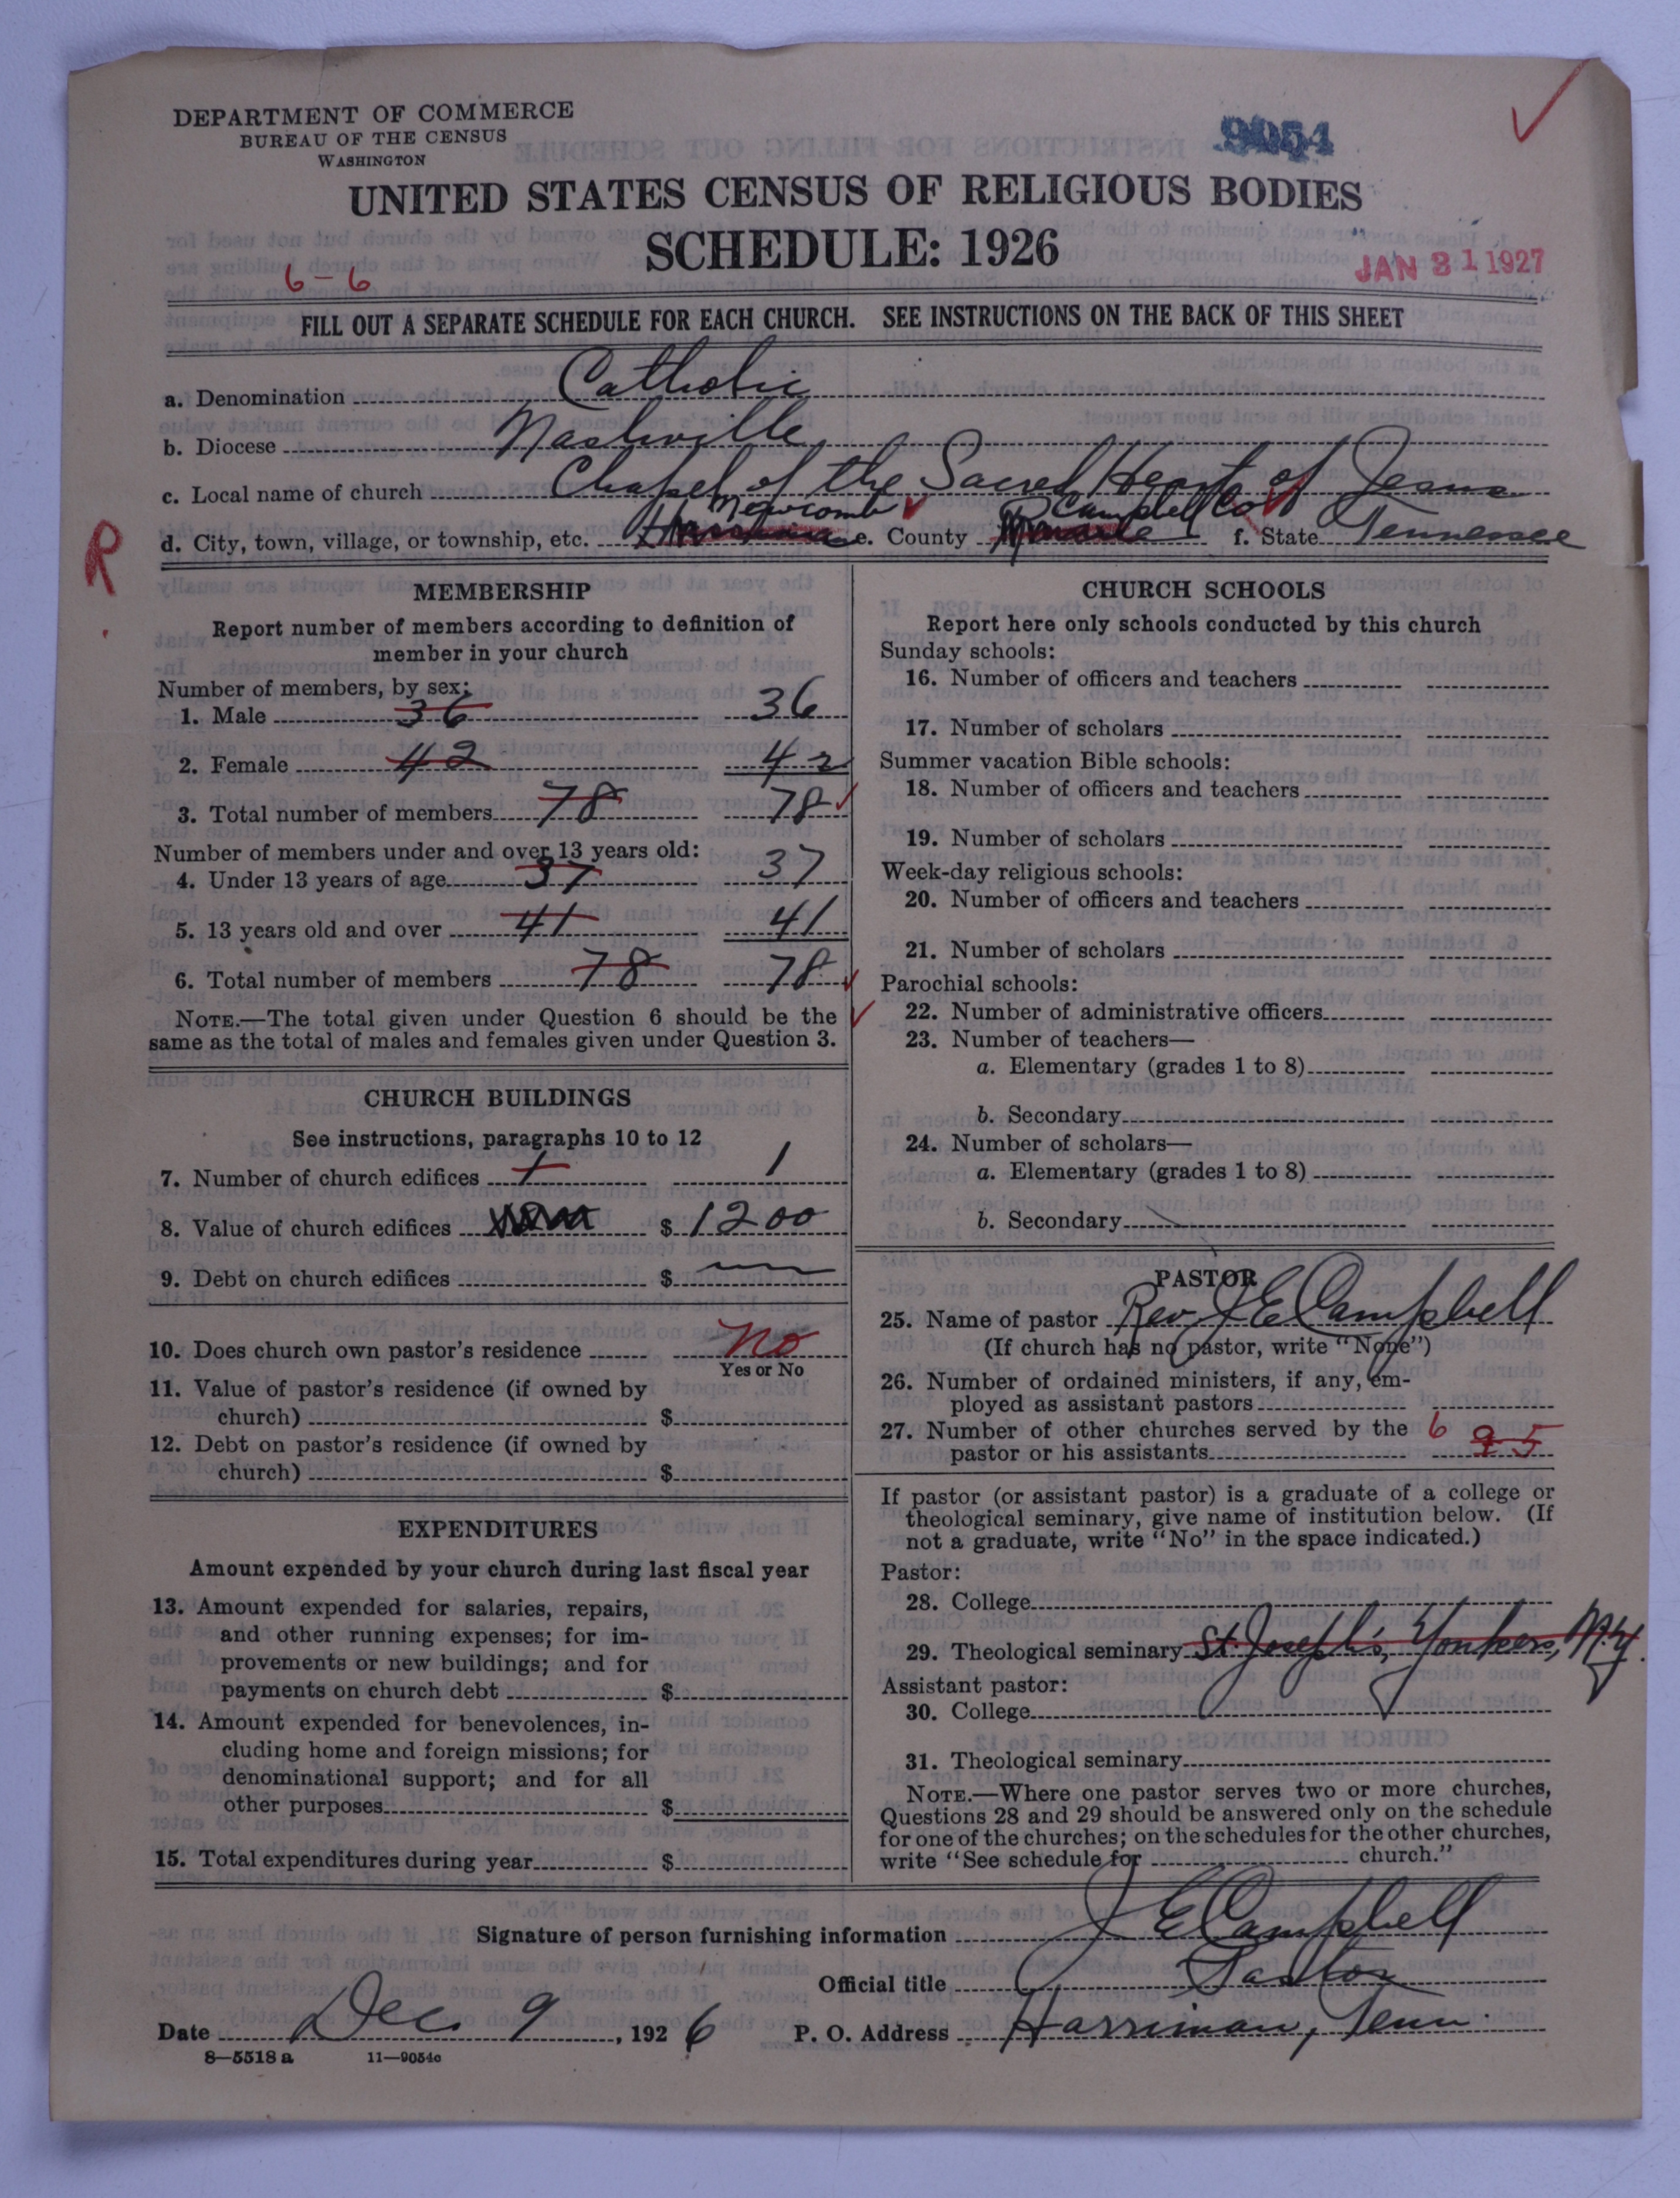 DEPARTMENT OF COMMERCE
BUREAU OF THE CENSUS
WASHINGTON
9054
UNITED STATES CENSUS OF RELIGIOUS BODIES
SCHEDULE: 1926
JAN 31 1927
6-6
FILL OUT A SEPARATE SCHEDULE FOR EACH CHURCH. SEE INSTRUCTIONS ON THE BACK OF THIS SHEET
a. Denomination Catholic
b. Diocese Nashville
c. Local name of church Chapel of the Sacred Heart of Jesus
d. City, town, village, or township, etc. Newcomb e. County Campbell Co f. State Tennessee
R
MEMBERSHIP
Report number of members according to definition of
member in your church
Number of members, by sex:
1. Male 36 36
2. Female 42 42
3. Total number of members 78 78
Number of members under and over 13 years old:
4. Under 13 years of age 37 37
5. 13 years old and over 41 41
6. Total number of members 78 78
NOTE.—The total given under Question 6 should be the
same as the total of males and females given under Question 3.
CHURCH BUILDINGS
See instructions, paragraphs 10 to 12
7. Number of church edifices 1 1
8. Value of church edifices $ 1200
9. Debt on church edifices $
10. Does church own pastor's residence No
Yes or No
11. Value of pastor's residence (if owned by
church) $
12. Debt on pastor's residence (if owned by
church) $
EXPENDITURES
Amount expended by your church during last fiscal year
13. Amount expended for salaries, repairs,
and other running expenses; for im-
provements or new buildings; and for
payments on church debt $
14. Amount expended for benevolences, in-
cluding home and foreign missions; for
denominational support; and for all
other purposes $
15. Total expenditures during year $
CHURCH SCHOOLS
Report here only schools conducted by this church
Sunday schools:
16. Number of officers and teachers
17. Number of scholars
Summer vacation Bible schools:
18. Number of officers and teachers
19. Number of scholars
Week-day religious schools:
20. Number of officers and teachers
21. Number of scholars
Parochial schools:
22. Number of administrative officers
23. Number of teachers—
a. Elementary (grades 1 to 8)
b. Secondary
24. Number of scholars—
a. Elementary (grades 1 to 8)
b. Secondary
PASTOR
25. Name of pastor Rev. J E Campbell
(If church has no pastor, write "None")
26. Number of ordained ministers, if any, em-
ployed as assistant pastors
27. Number of other churches served by the 6
pastor or his assistants 5
If pastor (or assistant pastor) is a graduate of a college or
theological seminary, give name of institution below. (If
not a graduate, write "No" in the space indicated.)
Pastor:
28. College
29. Theological seminary St. Joseph's, Yonkers, N.Y.
Assistant pastor:
30. College
31. Theological seminary
NOTE.—Where one pastor serves two or more churches,
Questions 28 and 29 should be answered only on the schedule
for one of the churches; on the schedules for the other churches,
write "See schedule for church."
Signature of person furnishing information J E Campbell
Official title Pastor
Date Dec 9, 1926 P. O. Address Harriman, Tenn.
8—5518 a 11—9054c